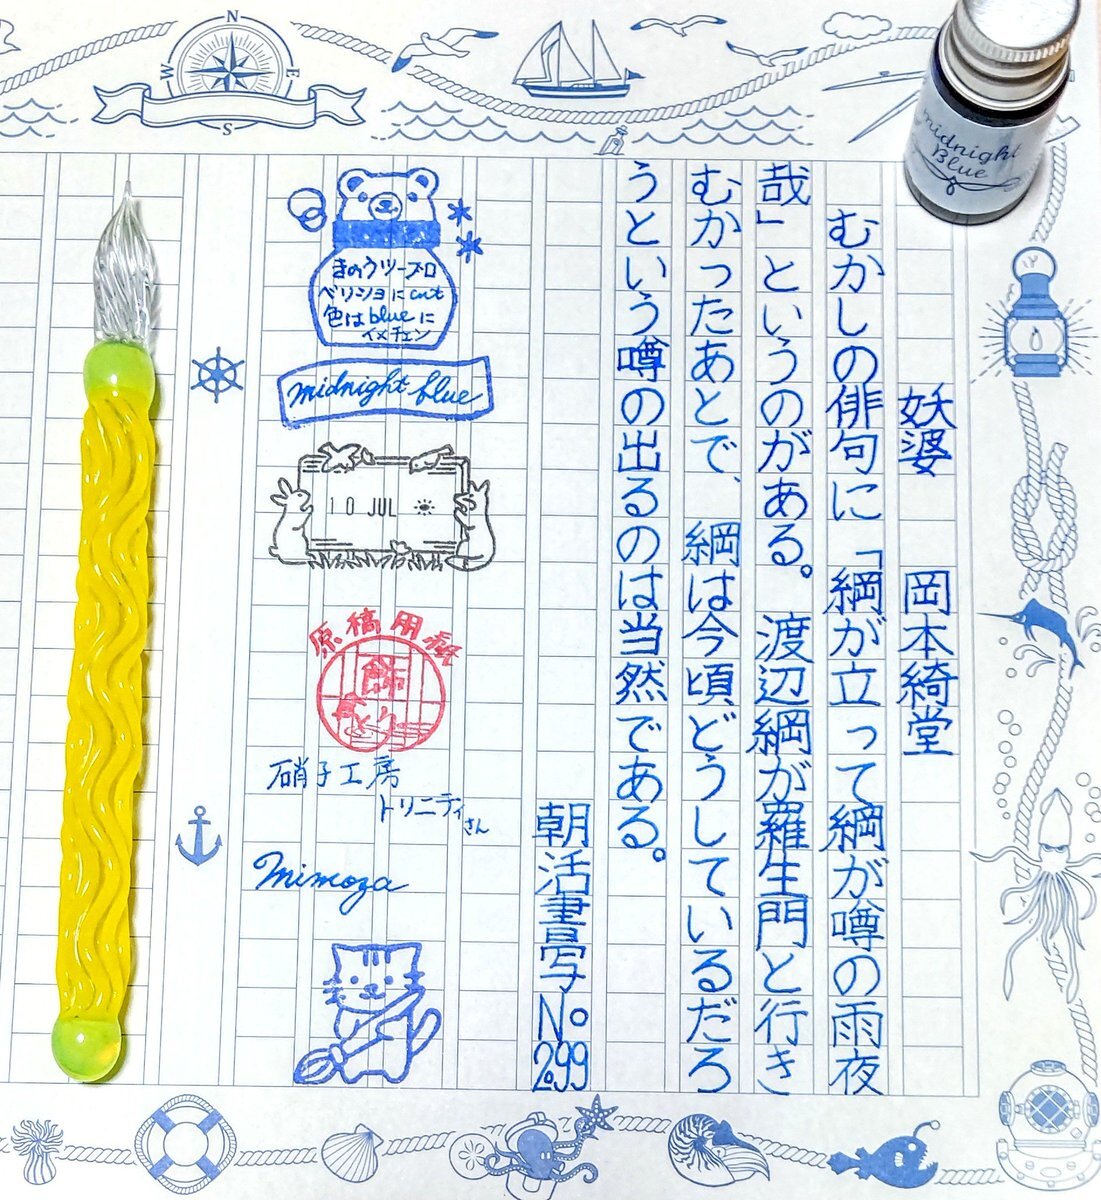 妖婆　岡本綺堂
むかしの俳句に「綱が立って綱が噂の雨夜
哉」というのがある。渡辺綱が羅生門と行き
むかったあとで、綱は今頃どうしているだろ
うという噂の出るのは当然である。
朝活書写No.299
きのうツーブロ
ベリショにcut
色はblueに
イメチェン
midnight blue
10 JUL
原稿用紙
飾
硝子工房
トリニティさん
Mimoza
midnight
Blue
N
W
E
S